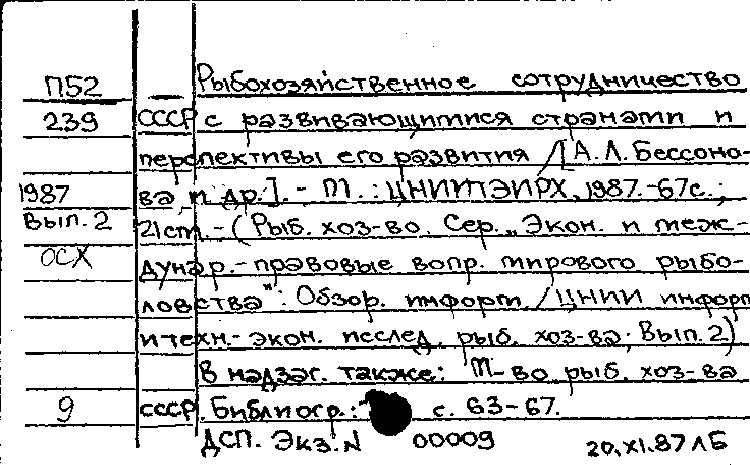 П52 Рыбохозяйственное сотрудничество
239 СССР с развивающимися странами и
перспективы его развития / [А.Л. Бессоно-
1987 ва и др.]. - М. : ЦНИИТЭИРХ, 1987. - 67с.;
Вып. 2 21см. - (Рыб. хоз-во. Сер. „Экон. и меж-
ОСХ дунар.-правовые вопр. мирового рыбо-
ловства": Обзор. информ / ЦНИИ информ
и техн.-экон. исслед. рыб. хоз-ва; Вып. 2)
В надзаг. также: М-во рыб. хоз-ва
9 СССР. Библиогр.: с. 63-67.
ДСП. Экз. N 00009 20.XI.87 ЛБ